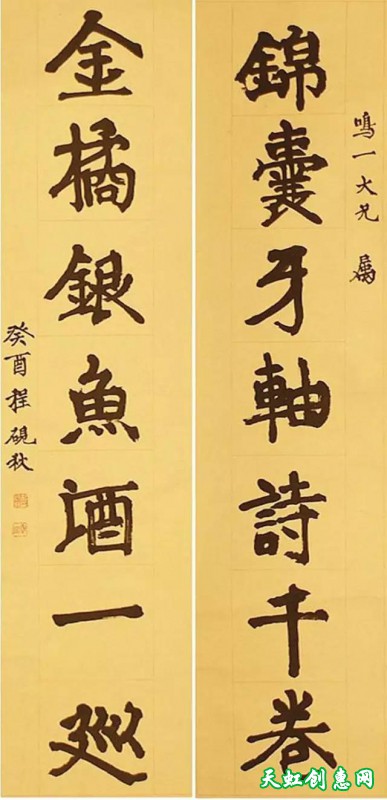 鳴一大兄 属
錦囊牙軸詩千卷
金橘銀魚酒一廵
癸酉程硯秋
天虹创惠网